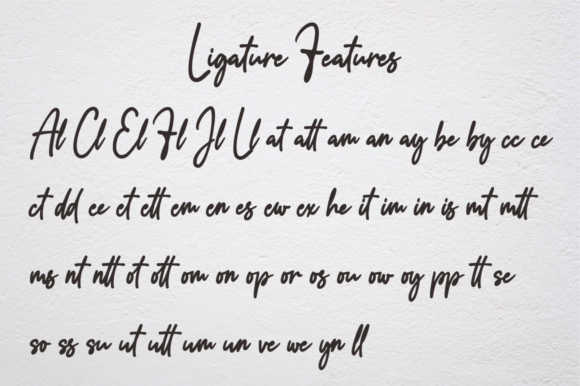 Ligature Features
Al Cl El Fl Jl Ul at att am an ay be by cc ce
ct dd ee et ett em en es ew ex he it im in is mt mtt
ms nt ntt ot ott om on op or os ou ow oy pp tt se
so ss su ut utt um un ve we yn ll